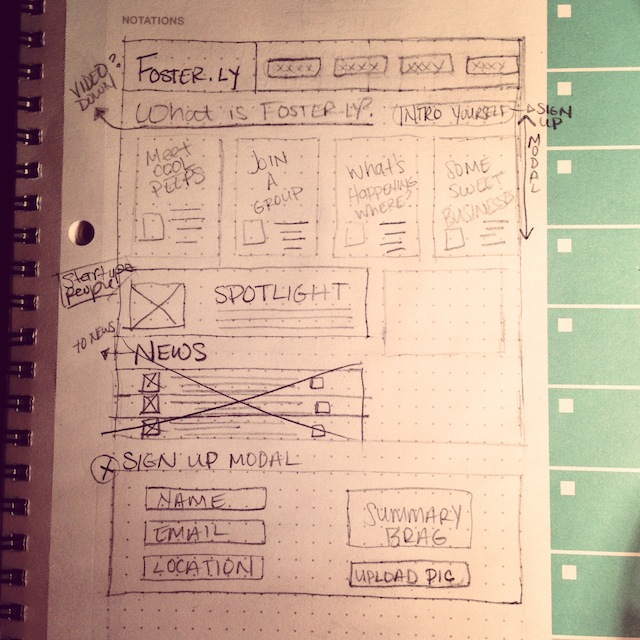 NOTATIONS
FOSTER.LY
XXXX XXXX XXXX XXXX
VIDEO?
DOWN
What is FOSTER.LY?
INTRO YOURSELF
SIGN
UP
MODAL
Meet
COOL
PEEPS
JOIN
A
GROUP
WHAT'S
HAPPENING
WHERE?
SOME
SWEET
BUSINESS
Startups
People
SPOTLIGHT
TO NEWS
NEWS
X SIGN UP MODAL
NAME
EMAIL
LOCATION
SUMMARY
BRAG
UPLOAD PIC